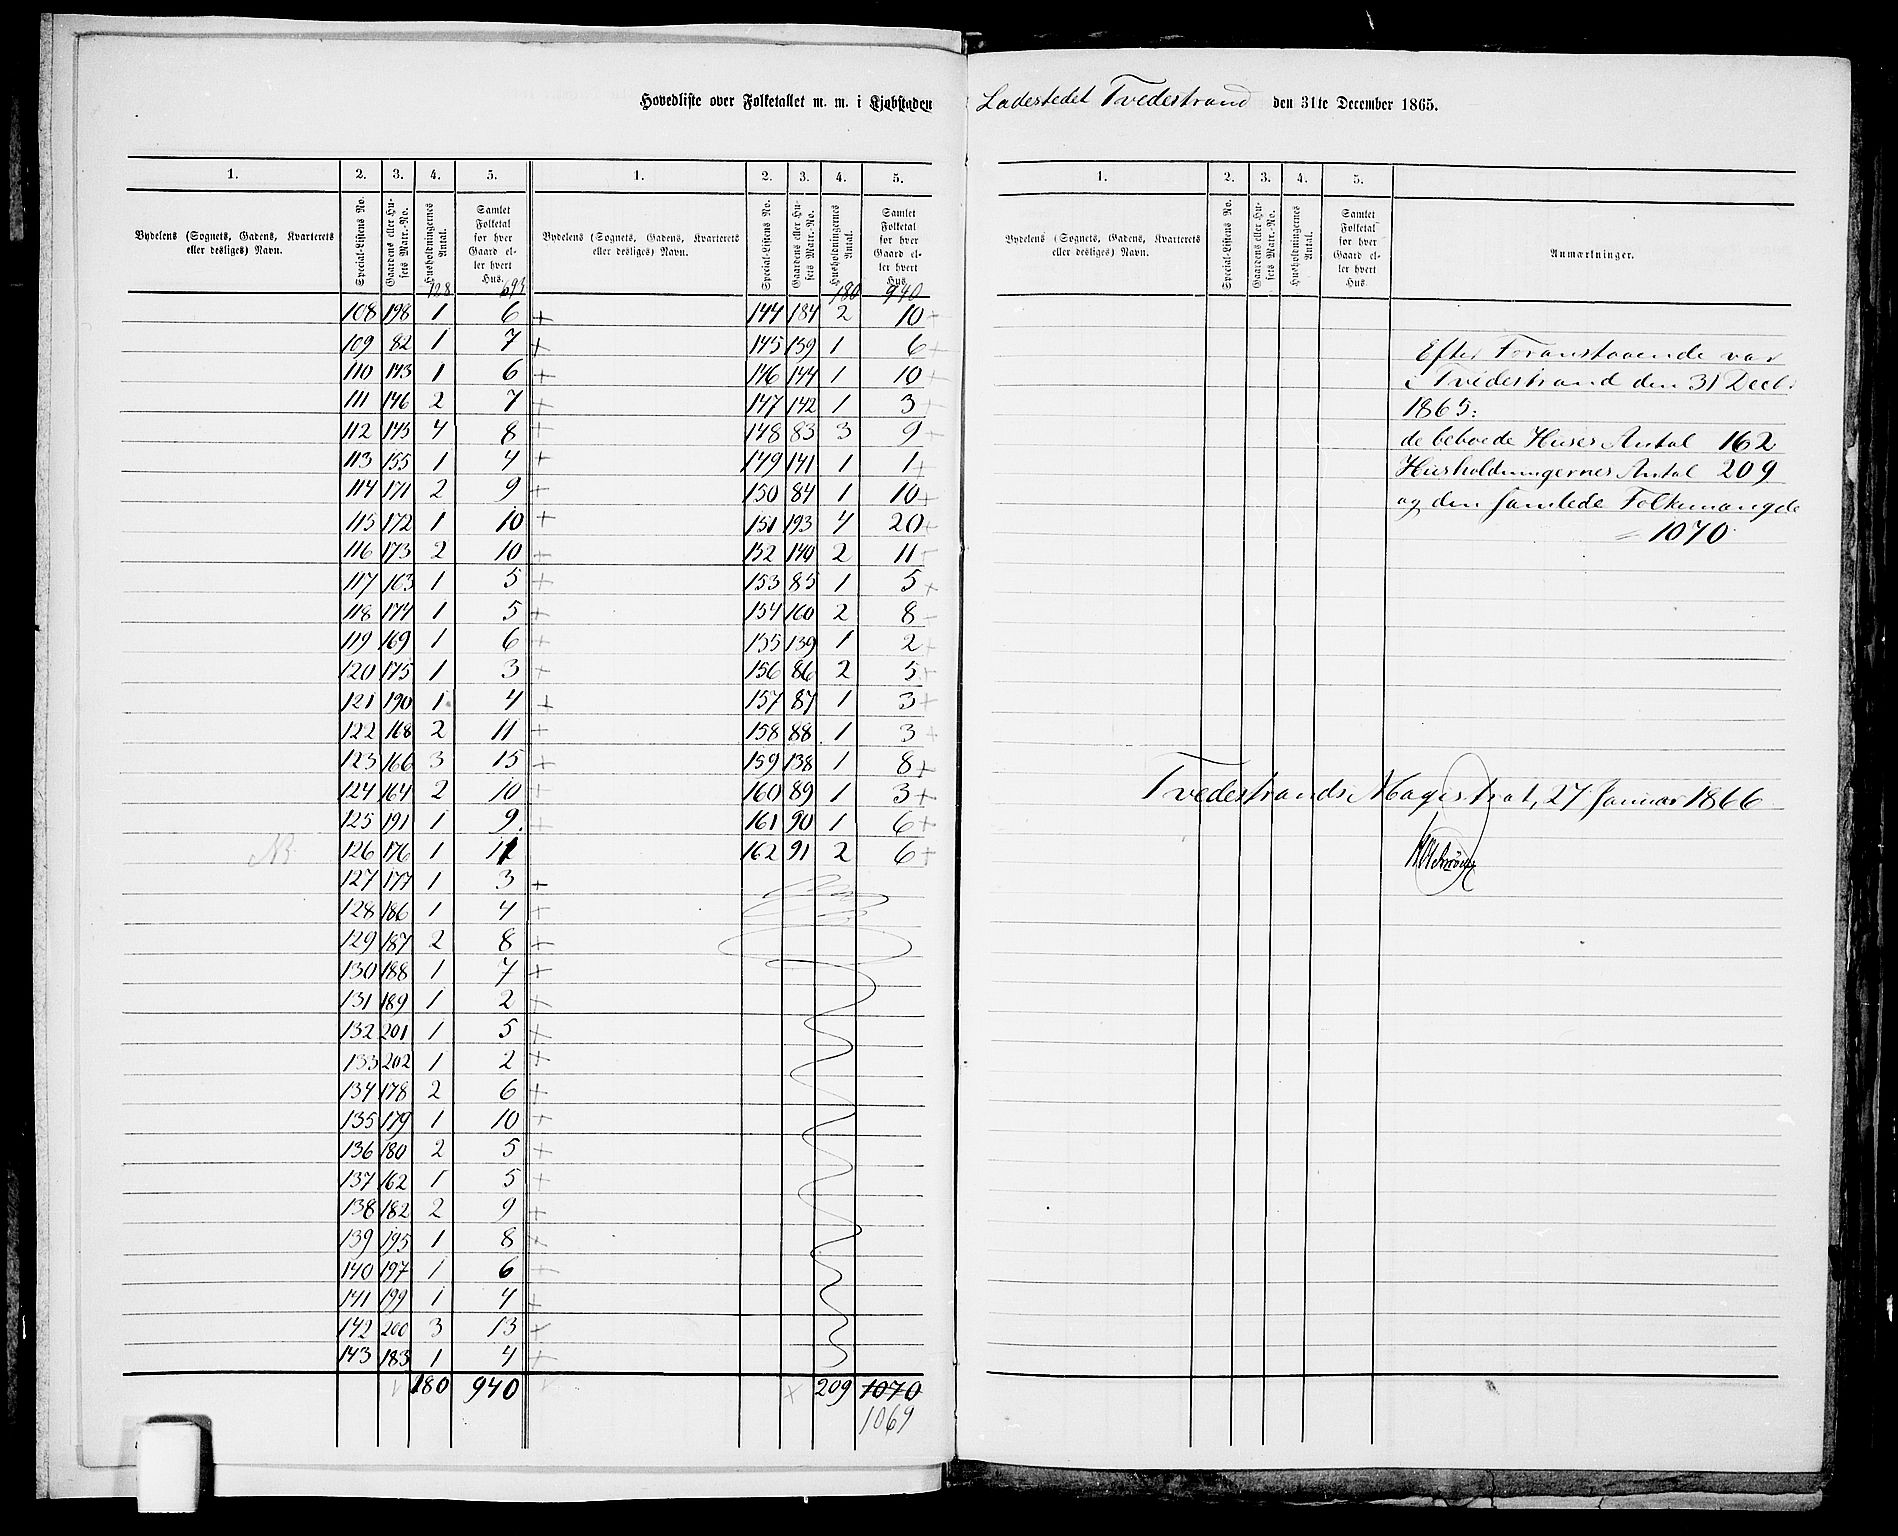 Hovedliste over Folketallet m. m. i Kjøbstaden Ladestedet Tvedestrand den 31te December 1865.
1. 2. 3. 4. 5. 1. 2. 3. 4. 5.
Bydelens (Sognets, Gadens, Kvarterets eller desliges) Navn.
Special-Listens No.
Gaardens eller Husets Matr.-No.
Husholdningernes Antal.
Samlet Folketal for hver Gaard eller hvert Hus.
Bydelens (Sognets, Gadens, Kvarterets eller desliges) Navn.
Special-Listens No.
Gaardens eller Husets Matr.-No.
Husholdningernes Antal.
Samlet Folketal for hver Gaard eller hvert Hus.
128 693 180 940
108 198 1 6 + 144 184 2 10 +
109 82 1 7 + 145 159 1 6 +
110 143 1 6 + 146 144 1 10 +
111 146 2 7 + 147 142 1 3 +
112 145 4 8 + 148 83 3 9 +
113 155 1 4 + 149 141 1 1 +
114 171 2 9 + 150 84 1 10 +
115 172 1 10 + 151 193 4 20 +
116 173 2 10 + 152 140 2 11 +
117 163 1 5 + 153 85 1 5 +
118 174 1 5 + 154 160 2 8 +
119 169 1 6 + 155 139 1 2 +
120 175 1 3 + 156 86 2 5 +
121 190 1 4 + 157 87 1 3 +
122 168 2 11 + 158 88 1 3 +
123 166 3 15 + 159 138 1 8 +
124 164 2 10 + 160 89 1 3 +
125 191 1 9 + 161 90 1 6 +
NB 126 176 1 162 91 2 6 +
127 177 1 3 +
128 186 1 4 +
129 187 2 8 +
130 188 1 7 +
131 189 1 2 +
132 201 1 5 +
133 202 1 2 +
134 178 2 6 +
135 179 1 10 +
136 180 2 5 +
137 162 1 5 +
138 182 2 9 +
139 195 1 8 +
140 197 1 6 +
141 199 1 4 +
142 200 3 13 +
143 183 1 4 +
180 940 209 1070
1069
1. 2. 3. 4. 5.
Bydelens (Sognets, Gadens, Kvarterets eller desliges) Navn.
Special-Listens No.
Gaardens eller Husets Matr.-No.
Husholdningernes Antal.
Samlet Folketal for hver Gaard eller hvert Hus.
Anmærkninger.
Efter Foranstaaende var
i Tvedestrand den 31 Decbr
1865:
de beboede Huses Antal 162
Husholdningernes Antal 209
og den samlede Folkemængde
= 1070.
Tvedestrands Magistrat, 27 Januar 1866